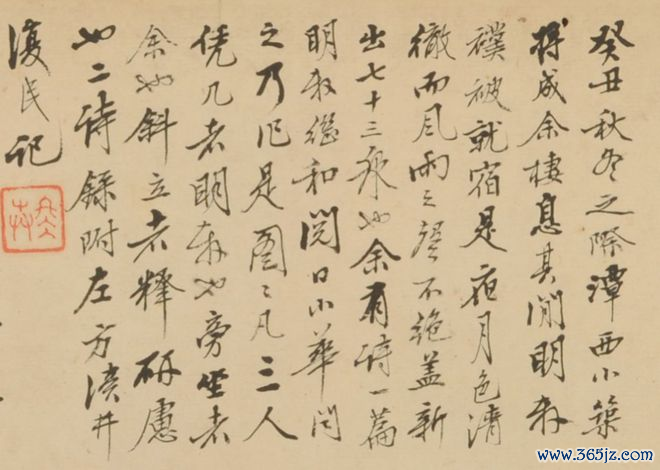 癸丑秋冬之際潭西小築
將成余棲息其間明叔
襆被就宿是夜月色清
徹而風雨之聲不絕蓋新
出七十三泉也余有詩一篇
明叔繼和閱日小華聞
之乃作是圖〻凡三人
凭几者明叔也旁坐者
余也斜立者釋研慮
也二詩錄附左方瀆井
復民記
冬卉
www.365jz.com